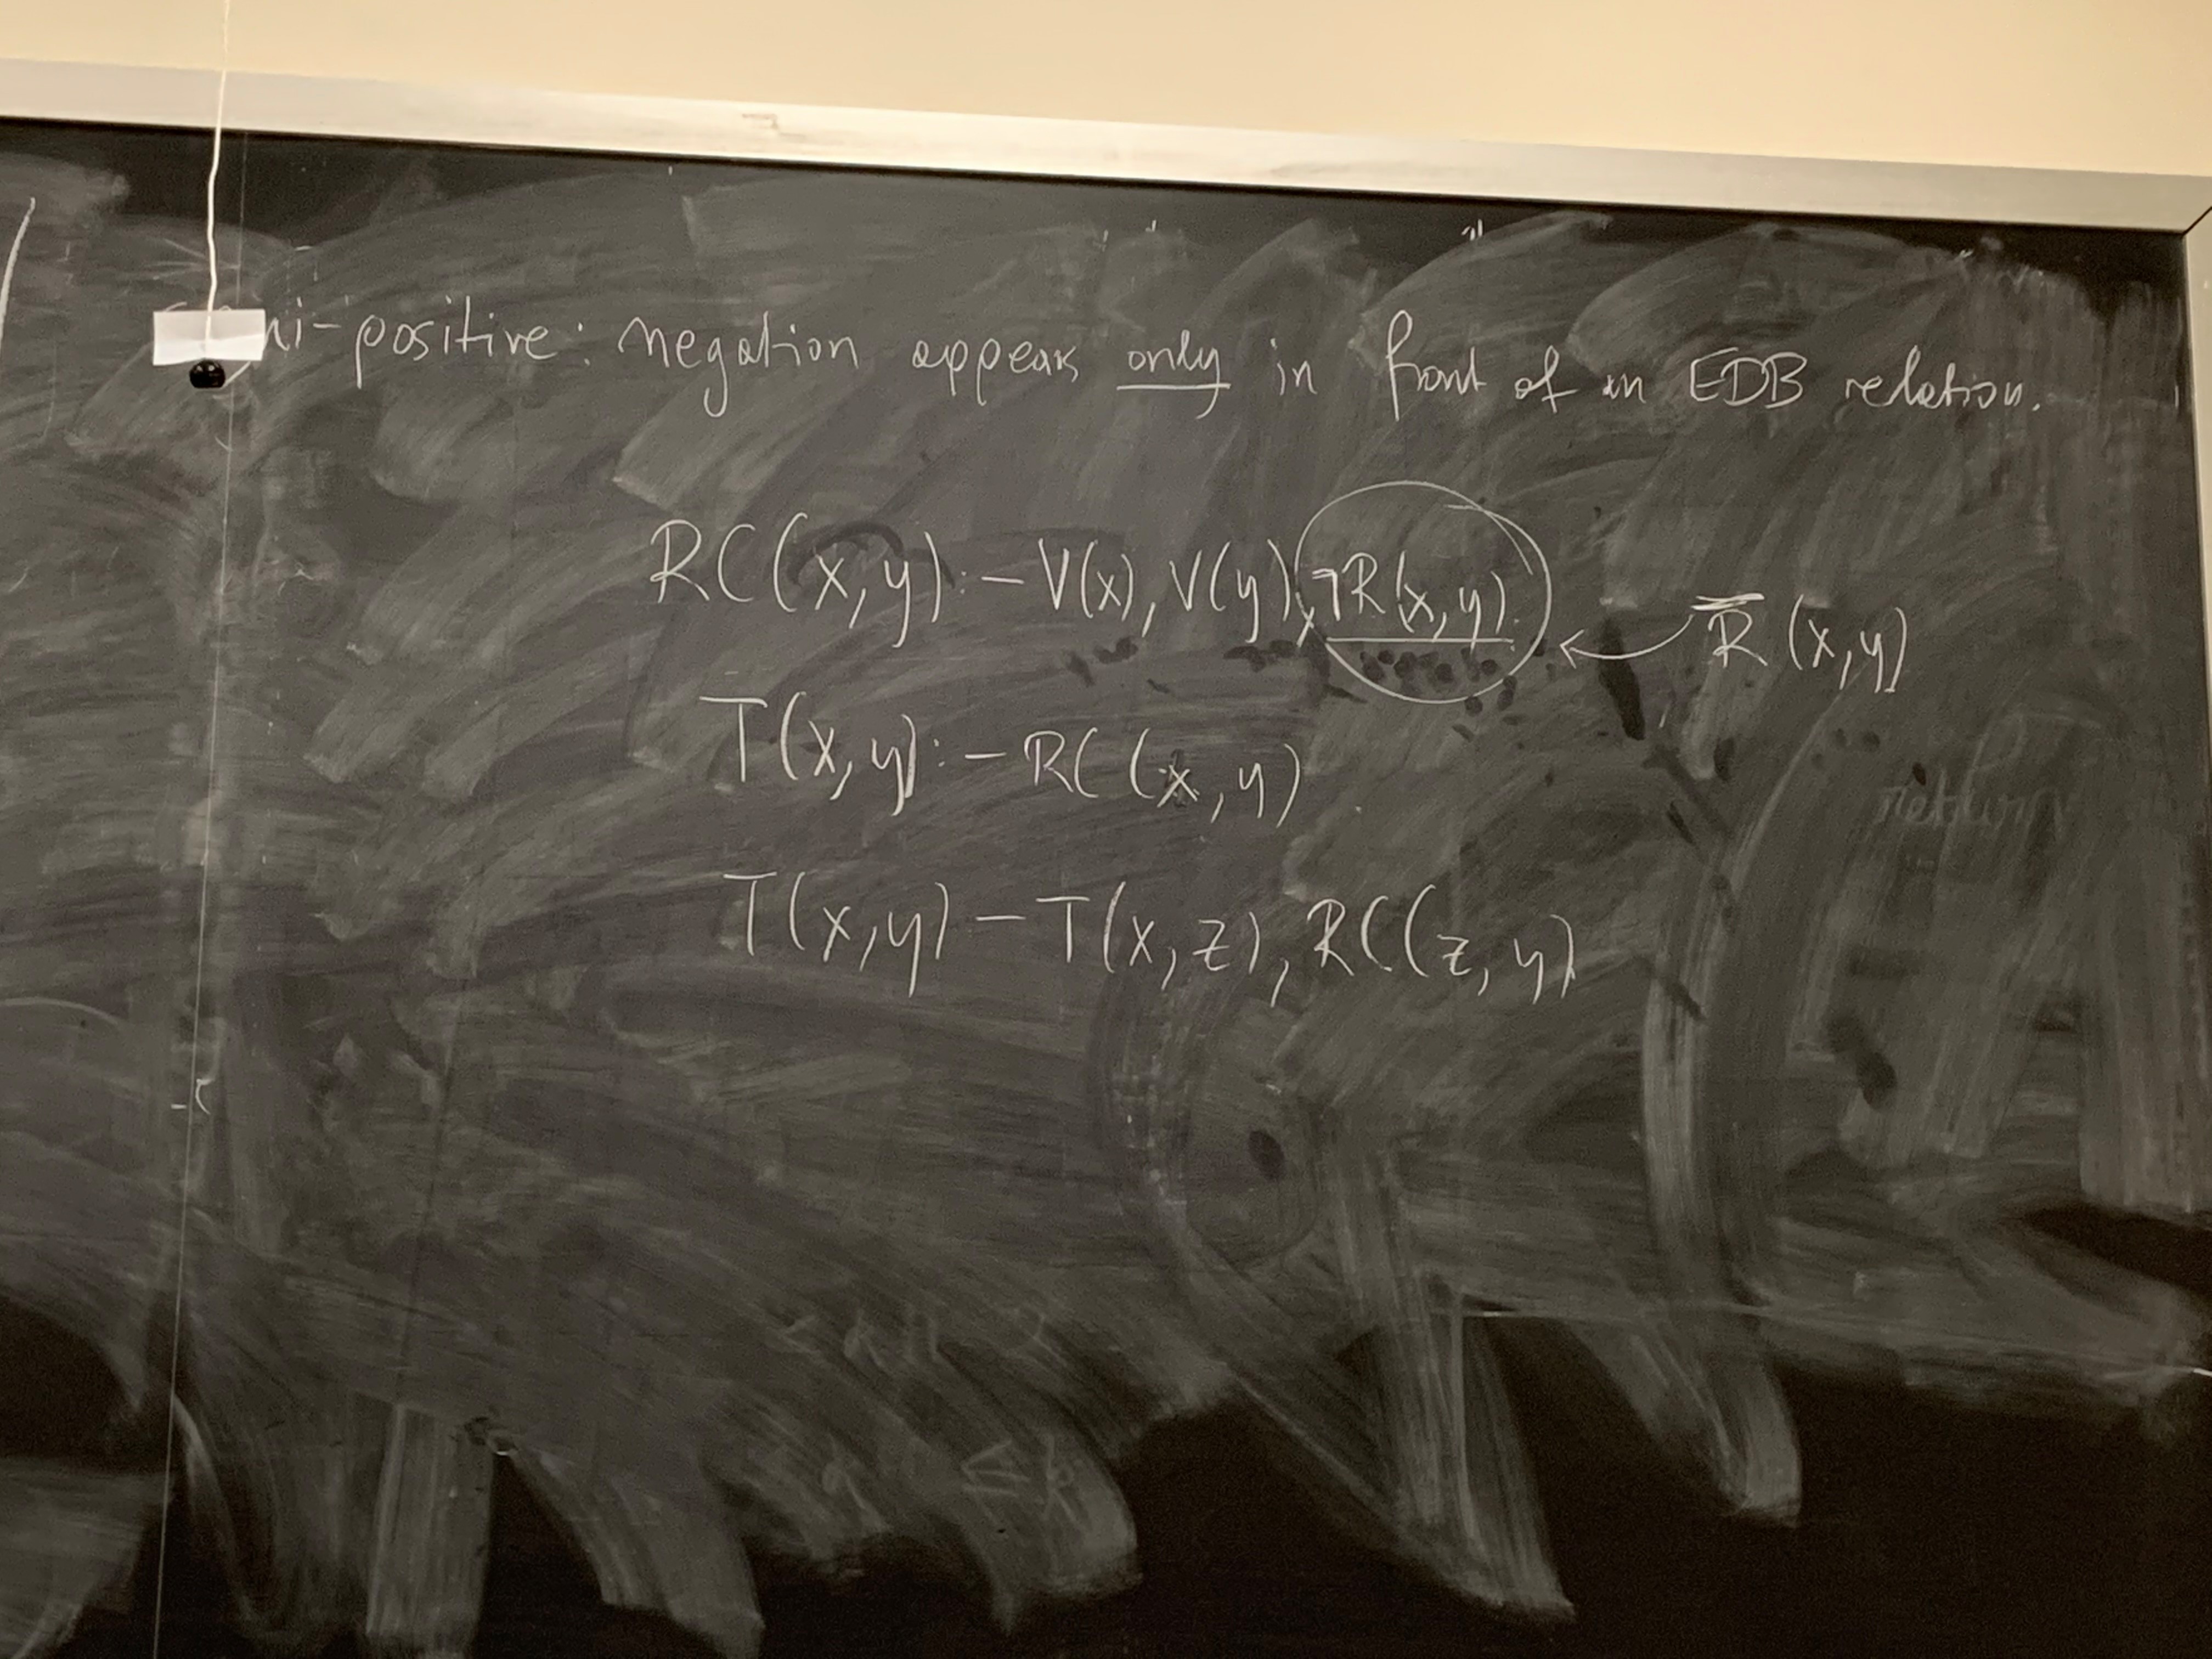 ni-positive: negation appears only in front of an EDB relation.
RC(x,y):- V(x), V(y), ¬R(x,y). ← R̅(x,y)
T(x,y):- RC(x,y)
T(x,y) - T(x,z), RC(z,y)